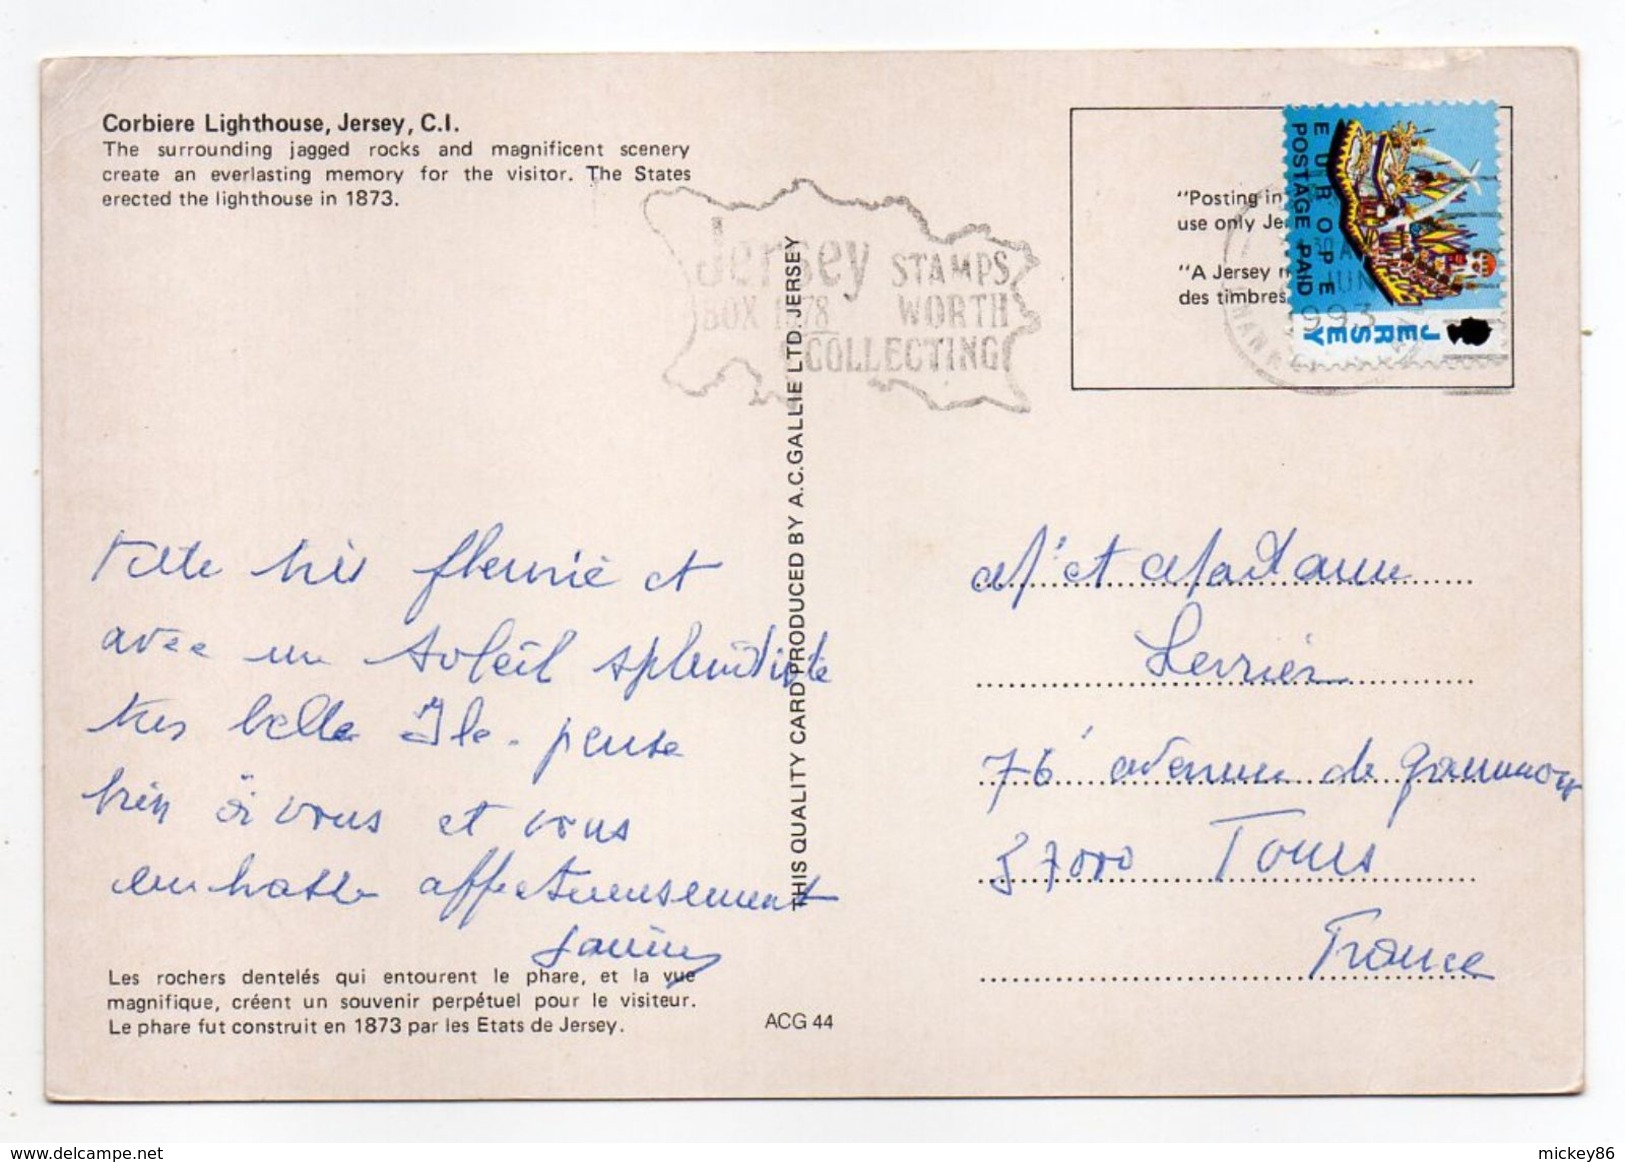 Corbiere Lighthouse, Jersey, C.I.
The surrounding jagged rocks and magnificent scenery
create an everlasting memory for the visitor. The States
erected the lighthouse in 1873.
Jersey STAMPS
BOX 1878 WORTH
COLLECTING
"Posting in
use only Je
"A Jersey
des timbres
EUROPE
POSTAGE PAID
JERSEY
JUN
1993
THIS QUALITY CARD PRODUCED BY A.C.GALLIE LTD. JERSEY
très fleurie et
avec un soleil splendide
très belle Ile - pense
bien à vous et vous
embrasse affectueusement
Les rochers dentelés qui entourent le phare, et la vue
magnifique, créent un souvenir perpétuel pour le visiteur.
Le phare fut construit en 1873 par les Etats de Jersey.
ACG 44
Mr et Madame
76 avenue de
37000 Tours
France
delcampe.net
mickey86